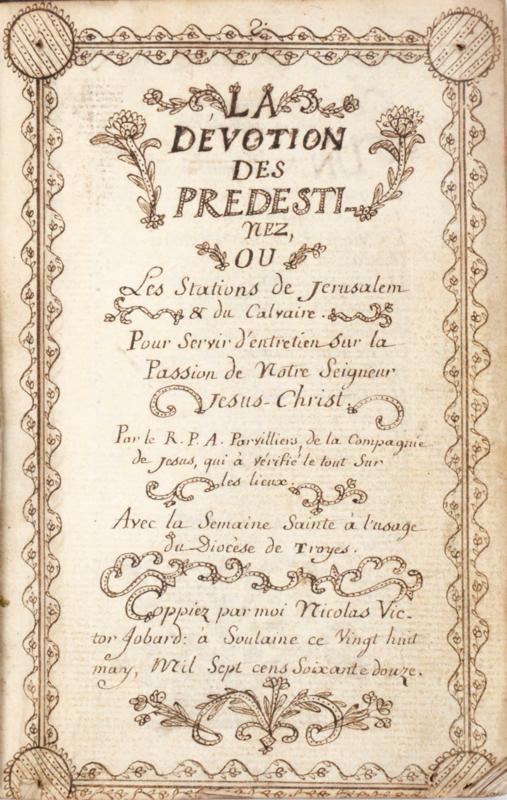 2.
LA
DÉVOTION
DES
PREDESTI-
NEZ,
OU
Les Stations de Jerusalem
& du Calvaire.
Pour Servir d'entretien Sur la
Passion de Notre Seigneur
Jesus-Christ.
Par le R. P. A. Parvilliers, de la Compagnie
de Jesus, qui à vérifié le tout Sur
les lieux.
Avec la Semaine Sainte à l'usage
du Diocèse de Troyes.
Coppiez par moi Nicolas Vic-
tor Jobard: à Soulaine ce Vingt huit
may, Mil Sept cens Soixante douze.